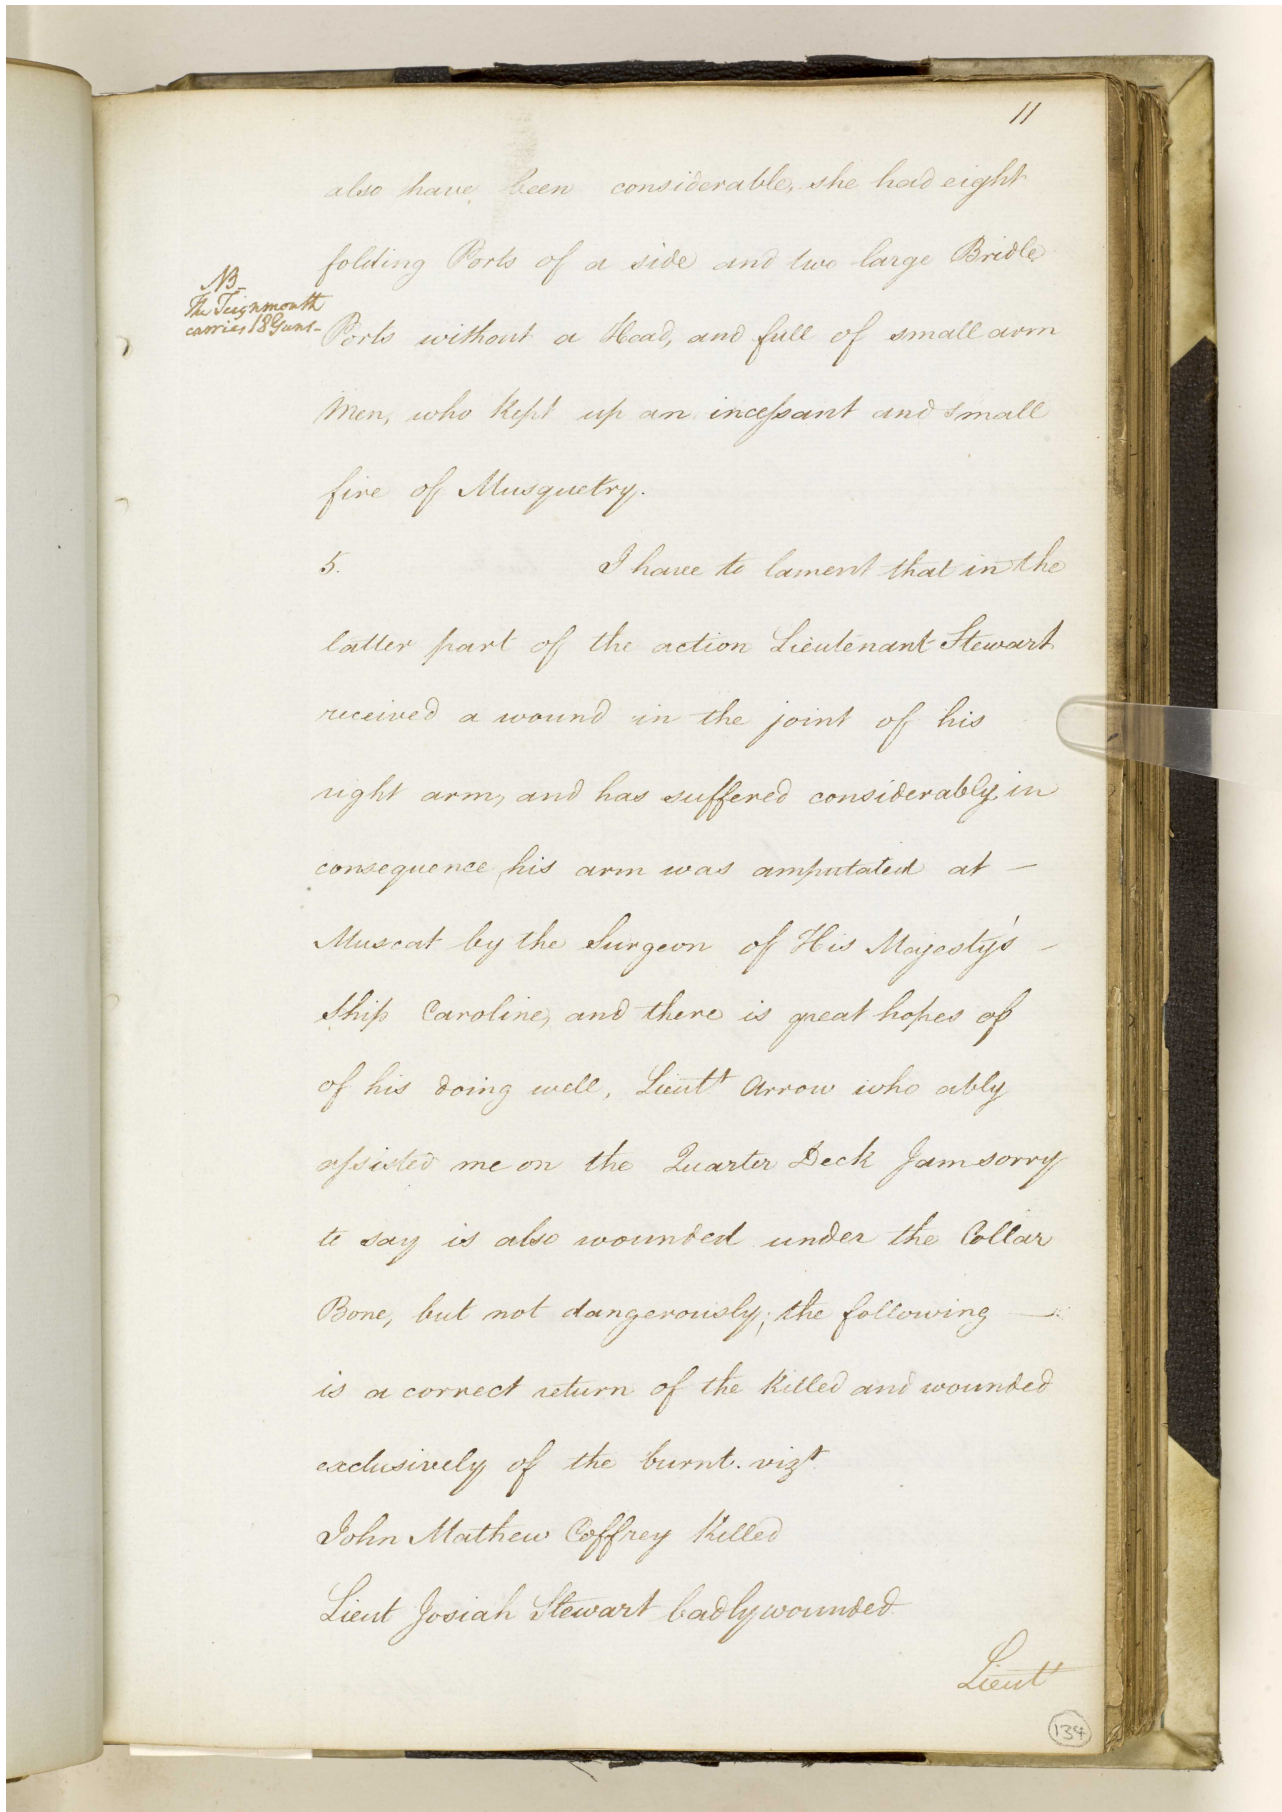 11
also have been considerable, she had eight
folding Ports of a side and two large Bridle
NB-
The Teignmouth
carries 18 Guns-
Ports without a Head, and full of small arm
Men, who kept up an incessant and small
fire of Musquetry.
5. I have to lament that in the
latter part of the action Lieutenant Stewart
received a wound in the joint of his
right arm, and has suffered considerably in
consequence, his arm was amputated at -
Muscat by the Surgeon of His Majesty's -
Ship Caroline, and there is great hopes of
of his doing well, Lieutt Arrow who ably
assisted me on the Quarter Deck I am sorry
to say is also wounded under the Collar
Bone, but not dangerously; the following -
is a correct return of the Killed and wounded
exclusively of the burnt. vizt
John Mathew Coffrey Killed
Lieut Josiah Stewart badly wounded
Lieutt
134